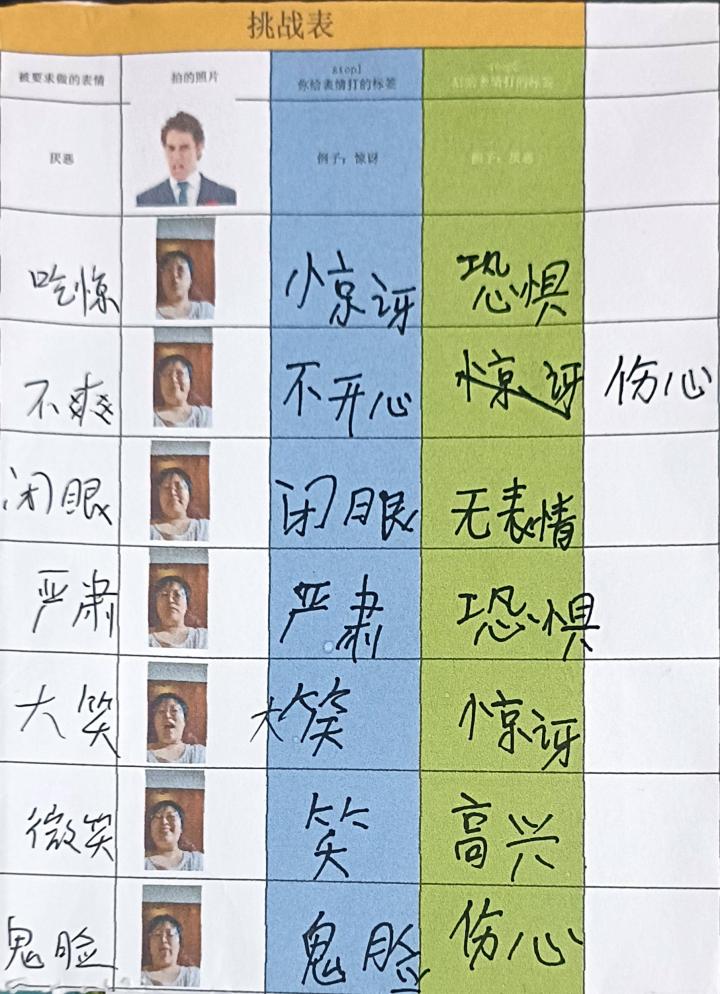 挑战表
被要求做的表情 拍的照片 step1 step2
你给表情打的标签 给表情打的标签
厌恶 例子：惊讶 例子：厌恶
吃惊 惊讶 恐惧
不爽 不开心 惊讶 伤心
闭眼 闭眼 无表情
严肃 严肃 恐惧
大笑 大笑 惊讶
微笑 笑 高兴
鬼脸 鬼脸 伤心